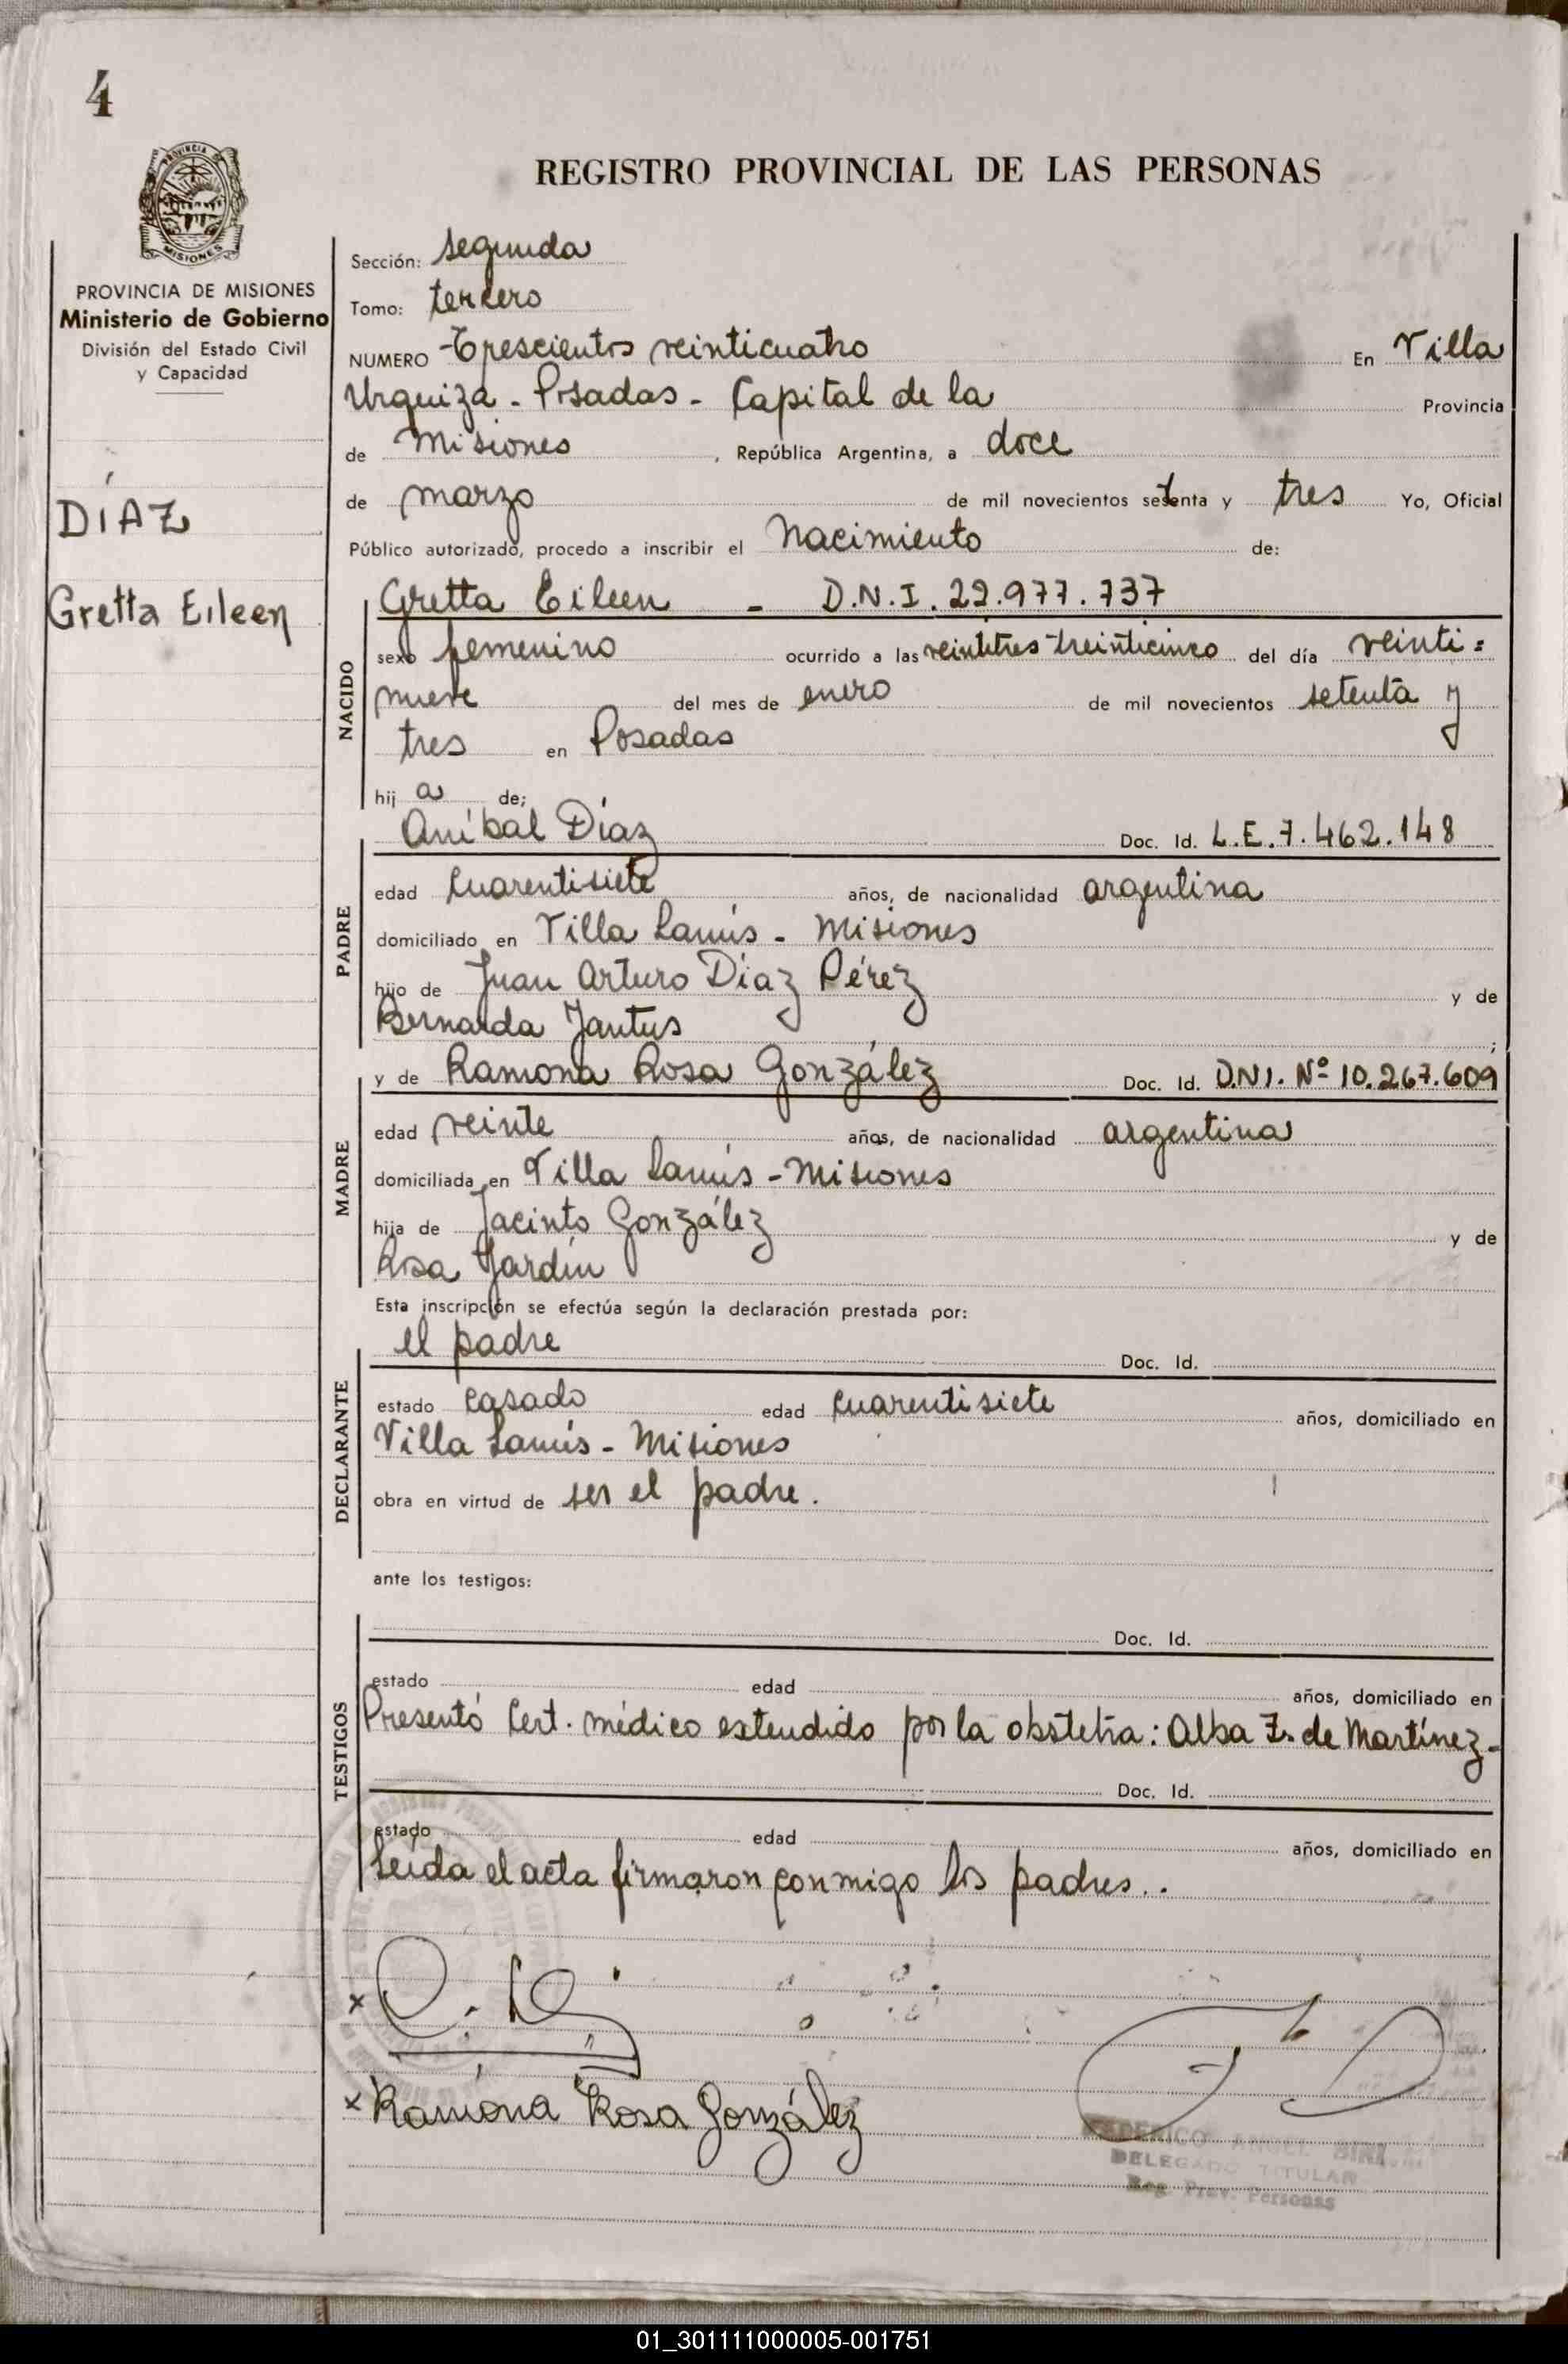 4
PROVINCIA DE
MISIONES
PROVINCIA DE MISIONES
Ministerio de Gobierno
División del Estado Civil
y Capacidad
DÍAZ
Gretta Eileen
REGISTRO PROVINCIAL DE LAS PERSONAS
Sección: segunda
Tomo: tercero
NUMERO Trescientos veinticuatro En Villa
Urquiza - Posadas - Capital de la Provincia
de Misiones, República Argentina, a doce
de marzo de mil novecientos setenta y tres Yo, Oficial
Público autorizado, procedo a inscribir el nacimiento de:
NACIDO
Gretta Eileen - D.N.I. 22.977.737
sexo femenino ocurrido a las veintitres treinticinco del día veinti=
nueve del mes de enero de mil novecientos setenta y
tres en Posadas
hij a de;
PADRE
Aníbal Díaz Doc. Id. L.E. 7.462.148
edad cuarentisiete años, de nacionalidad argentina
domiciliado en Villa Lanús - Misiones
hijo de Juan Arturo Díaz Pérez y de
Bernarda Jantus ;
MADRE
y de Ramona Rosa González Doc. Id. D.N.I. Nº 10.267.609
edad veinte años, de nacionalidad argentina
domiciliada en Villa Lanús - Misiones
hija de Jacinto González y de
Rosa Jardín
Esta inscripción se efectúa según la declaración prestada por:
DECLARANTE
el padre Doc. Id.
estado casado edad cuarentisiete años, domiciliado en
Villa Lanús - Misiones
obra en virtud de ser el padre.
ante los testigos:
TESTIGOS
Doc. Id.
estado edad años, domiciliado en
Presentó Cert. médico extendido por la obstetra: Alba Z. de Martínez-
Doc. Id.
estado edad años, domiciliado en
Leída el acta firmaron conmigo los padres..
x
x Ramona Rosa González
FEDERICO ANGEL
DELEGADO TITULAR
Reg. Prov. Personas
01_301111000005-001751